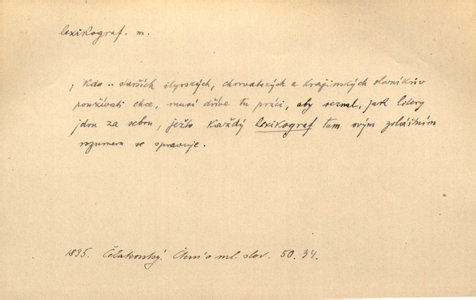 lexikograf. m.
, kdo .. starších illyrských, chorvatských a krajinských slovníkův
používati chce, musí dříve tu práci, aby seznal, jak litery
jdou za sebou, ježto každý lexikograf tam svým zvláštním
rozumem se spravuje.
1835. Čelakovský. Čtení o ml. slov. 50. 34.